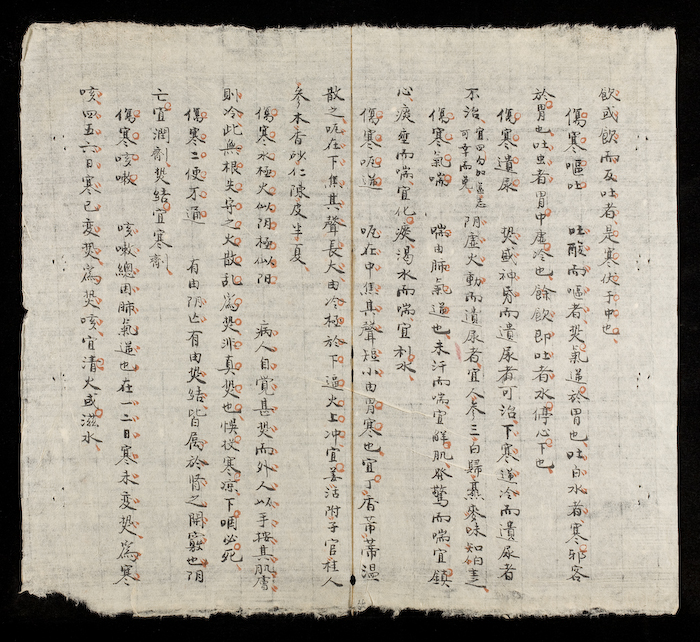 飲或飲而反吐者是寒伏于中也
傷寒嘔吐 吐酸而嘔者熒氣逆於胃也吐白水者寒邪客
於胃也吐虫者胃中虛冷也餘飲即吐者水停心下也
傷寒遺尿 熒盛神昏而遺尿者可治下寒逆冷而遺尿者
不治 阴虛火動而遺尿者宜人參三白歸芪麥味知
傷寒氣喘 喘由肺氣逆也未汗而喘宜觧肌發驚而喘宜鎮
心痰壅而喘宜化痰渴水而喘宜利水
傷寒呃逆 呃在中焦其聲短小由胃寒也宜丁香蒂溫
散之呃在下焦其聲長大由冷極於下逼火上冲宜羌活附子官桂人
參木香砂仁陳皮半夏
傷寒水極火似阴極似阳 病人自覺甚熒而外人以手按其肌膚
則冷此無根失守之火散乱為熒非真熒也悞投寒凉下咽必死
傷寒二便不通 有由阴亡有由熒結皆屬於腎之開竅也阴
亡宜潤劑熒結宜寒劑
傷寒咳嗽 咳嗽總因肺氣逆也在一二日寒未变熒為寒
咳四五六日寒已变熒為熒咳宜清火或滋水